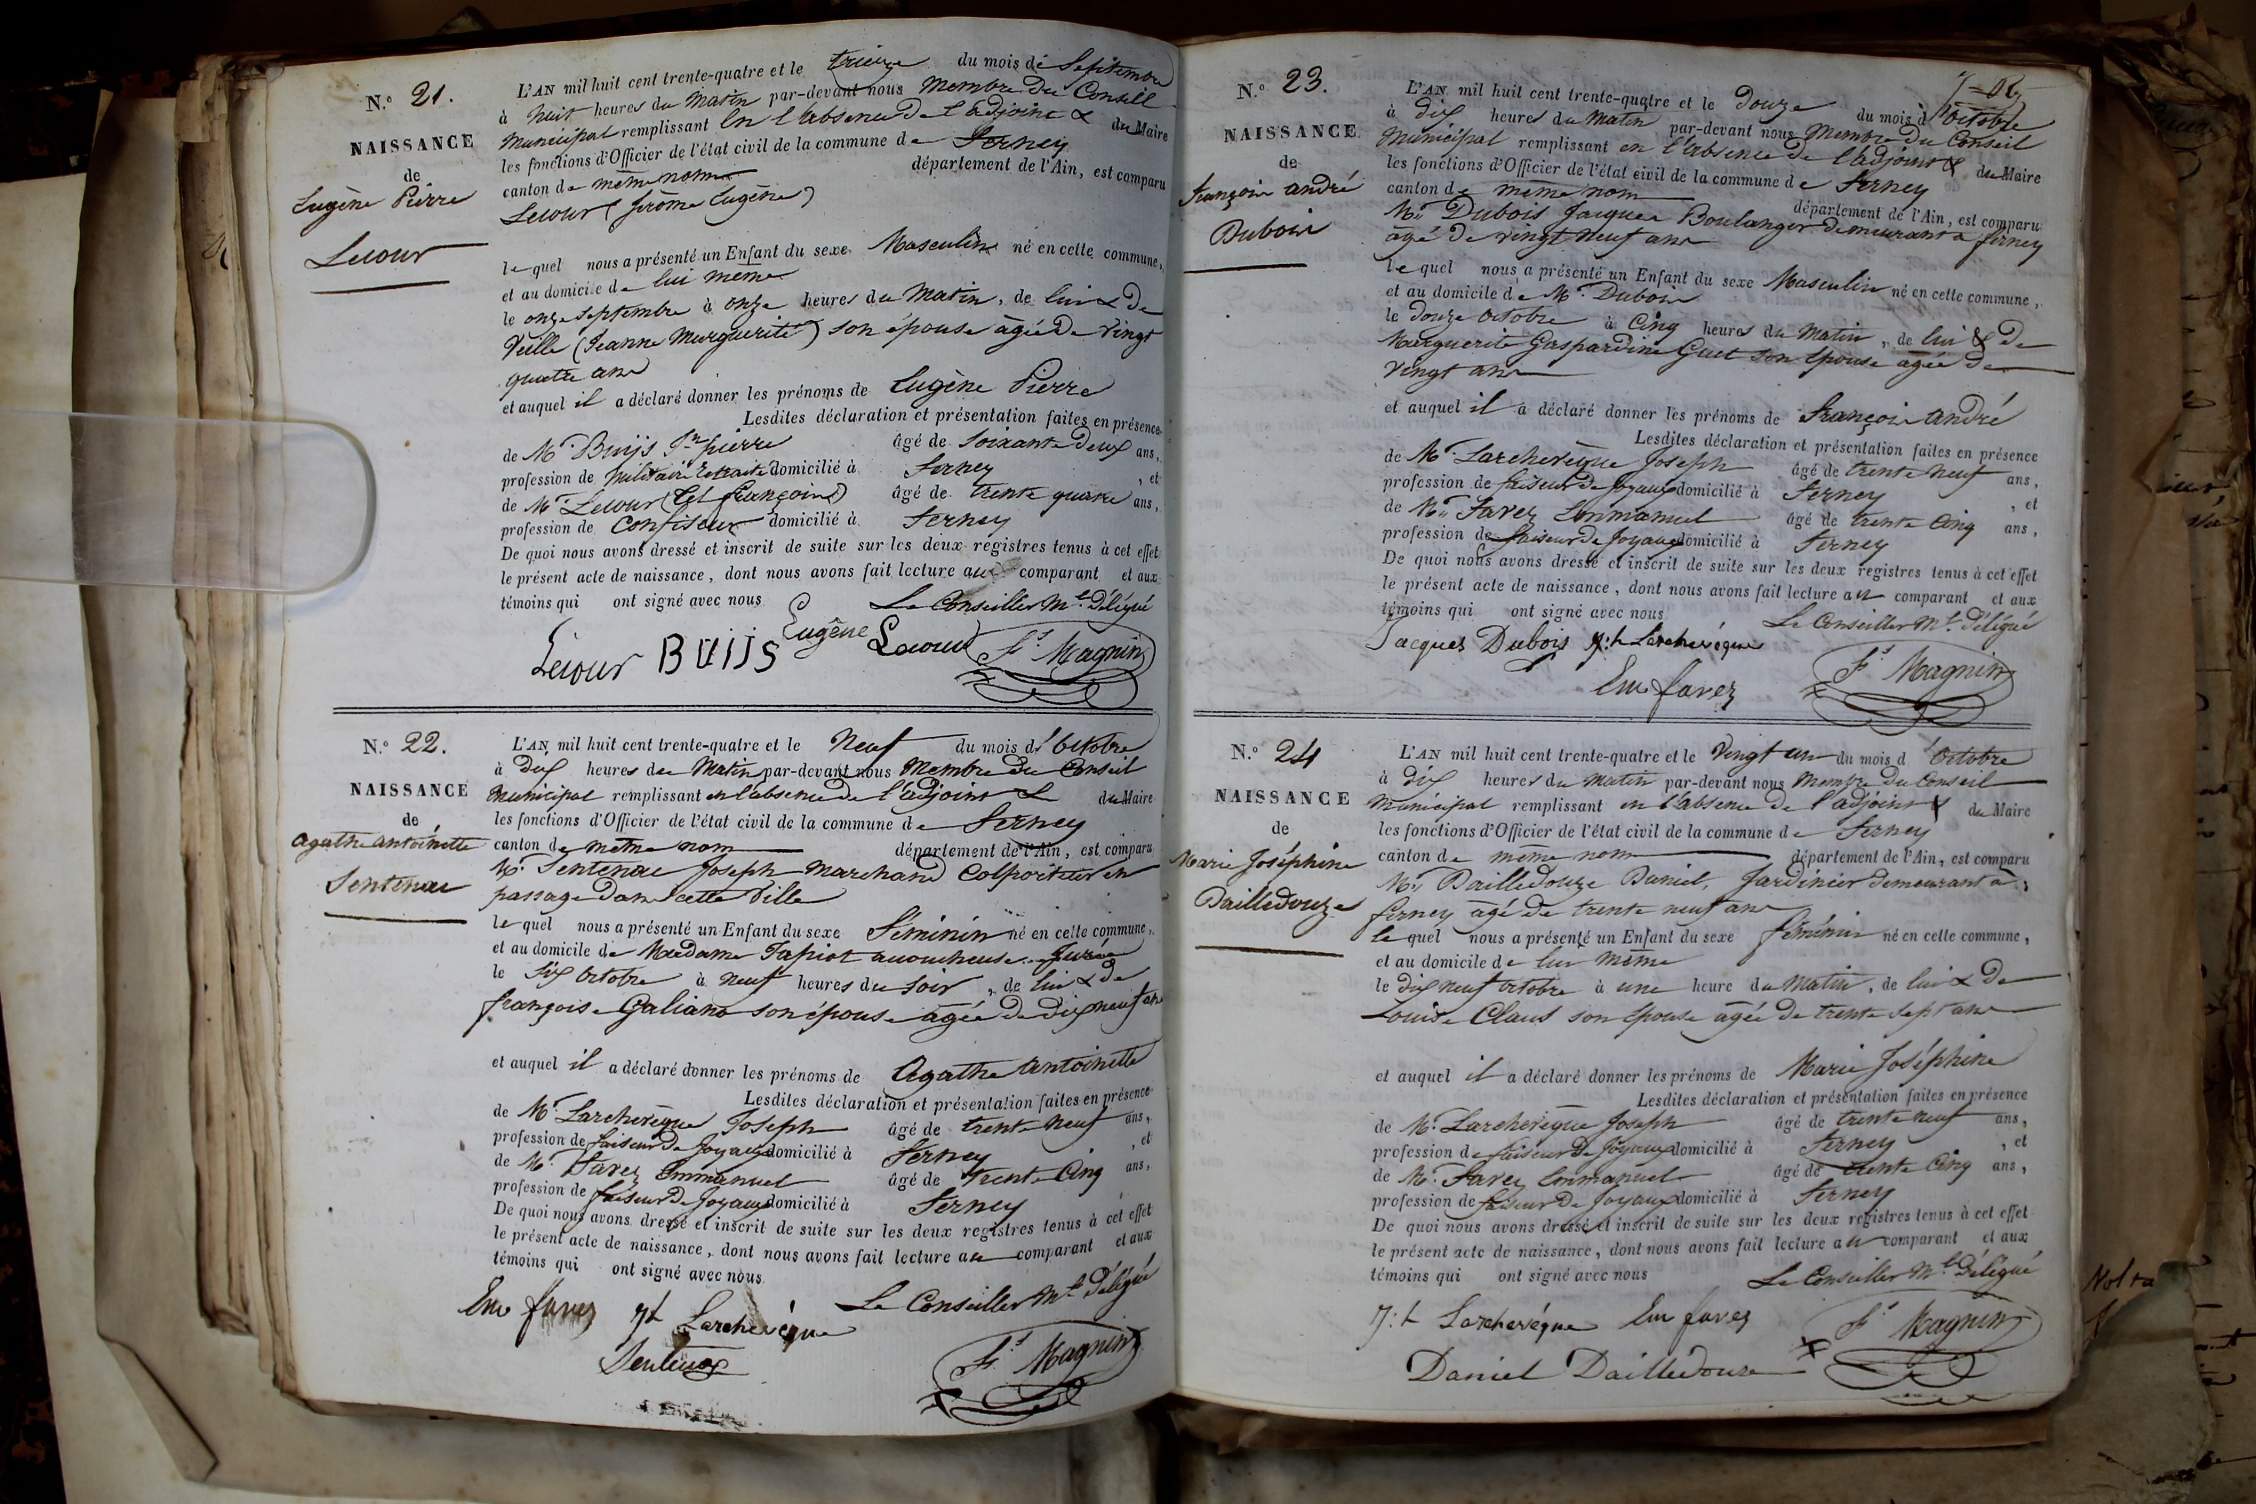 N.º 21.
NAISSANCE
de
Eugène Pierre
Lecour
L'AN mil huit cent trente-quatre et le treize du mois de Septembre
à huit heures du Matin par-devant nous Membre Du Conseil
Municipal remplissant En l'absence De l'adjoint & du Maire
les fonctions d'Officier de l'état civil de la commune de Ferney
canton de même nom département de l'Ain, est comparu
Lecour (Jérôme Eugène)
lequel nous a présenté un Enfant du sexe Masculin né en cette commune,
et au domicile de lui même
le onze Septembre à onze heures du Matin, de lui & De
Veille (Jeanne Marguerite) son épouse agée De Vingt
quatre ans
et auquel il a déclaré donner les prénoms de Eugène Pierre
Lesdites déclaration et présentation faites en présence
de Mr. Buijs Jn pierre âgé de Soixante Deux ans,
profession de Militaire Retraité domicilié à Ferney, et
de Mr Lecour (Cel François) âgé de trente quatre ans,
profession de Confiseur domicilié à Ferney
De quoi nous avons dressé et inscrit de suite sur les deux registres tenus à cet effet
le présent acte de naissance, dont nous avons fait lecture au comparant et aux
témoins qui ont signé avec nous
Le Conseiller Ml. Délégué
Lecour BUIJS Eugène Lecour Fs Magnin
N.º 22.
NAISSANCE
de
Agathe Antoinette
Sentenac
L'AN mil huit cent trente-quatre et le Neuf du mois d'Octobre
à Dix heures du Matin par-devant nous Membre Du Conseil
Municipal remplissant en l'absence de l'adjoint & du Maire
les fonctions d'Officier de l'état civil de la commune de Ferney
canton de même nom département de l'Ain, est comparu
Mr. Sentenac Joseph Marchand Colporteur en
passage Dans cette Ville
lequel nous a présenté un Enfant du sexe Féminin né en cette commune,
et au domicile de Madame Tapiot accoucheuse Jurée
le Six Octobre à neuf heures du soir, de lui & de
françoise Galiano son épouse âgée De dix neuf ans
et auquel il a déclaré donner les prénoms de Agathe Antoinette
Lesdites déclaration et présentation faites en présence
de Mr. Larchevêque Joseph âgé de trente neuf ans,
profession de faiseur De Joyaux domicilié à Ferney, et
de Mr. Favez Emmanuel âgé de trente Cinq ans,
profession de faiseur De Joyaux domicilié à Ferney
De quoi nous avons dressé et inscrit de suite sur les deux registres tenus à cet effet
le présent acte de naissance, dont nous avons fait lecture au comparant et aux
témoins qui ont signé avec nous
Le Conseiller Ml. Délégué
Em favez Jh Larchevêque
Sentenac Fs Magnin
N.º 23.
NAISSANCE
de
François André
Dubois
L'AN mil huit cent trente-quatre et le Douze du mois d'Octobre
à Dix heures du Matin par-devant nous Membre Du Conseil
Municipal remplissant en l'absence de l'adjoint & du Maire
les fonctions d'Officier de l'état civil de la commune de Ferney
canton de même nom département de l'Ain, est comparu
Mr. Dubois Jacques Boulanger demeurant à ferney
âgé De vingt neuf ans
lequel nous a présenté un Enfant du sexe Masculin né en cette commune,
et au domicile de Mr. Dubois
le Douze Octobre à Cinq heures du Matin, de lui & De
Marguerite Gaspardine Guet son épouse agée de
Vingt ans
et auquel il a déclaré donner les prénoms de François André
Lesdites déclaration et présentation faites en présence
de Mr. Larchevêque Joseph âgé de trente neuf ans,
profession de faiseur De Joyaux domicilié à Ferney, et
de Mr. Favez Emmanuel âgé de trente Cinq ans,
profession de faiseur De Joyaux domicilié à Ferney
De quoi nous avons dressé et inscrit de suite sur les deux registres tenus à cet effet
le présent acte de naissance, dont nous avons fait lecture au comparant et aux
témoins qui ont signé avec nous
Le Conseiller Ml. Délégué
Jacques Dubois J:h Larchevêque
Em favez Fs Magnin
N.º 24
NAISSANCE
de
Marie Joséphine
Dailledouze
L'AN mil huit cent trente-quatre et le Vingt un du mois d'Octobre
à Dix heures du Matin par-devant nous Membre Du Conseil
Municipal remplissant en l'absence De l'adjoint & du Maire
les fonctions d'Officier de l'état civil de la commune de Ferney
canton de même nom département de l'Ain, est comparu
Mr. Dailledouze Daniel, Jardinier demeurant à
ferney agé De trente neuf ans
lequel nous a présenté un Enfant du sexe féminin né en cette commune,
et au domicile de lui même
le dix neuf octobre à une heure du Matin, de lui & De
Louise Claus son épouse agée De trente sept ans
et auquel il a déclaré donner les prénoms de Marie Joséphine
Lesdites déclaration et présentation faites en présence
de Mr. Larchevêque Joseph âgé de trente neuf ans,
profession de faiseur De Joyaux domicilié à Ferney, et
de Mr. Favez Emmanuel âgé de trente Cinq ans,
profession de faiseur De Joyaux domicilié à Ferney
De quoi nous avons dressé et inscrit de suite sur les deux registres tenus à cet effet
le présent acte de naissance, dont nous avons fait lecture au comparant et aux
témoins qui ont signé avec nous
Le Conseiller Ml. Délégué
J:h Larchevêque Em favez Fs Magnin
Daniel Dailledouze